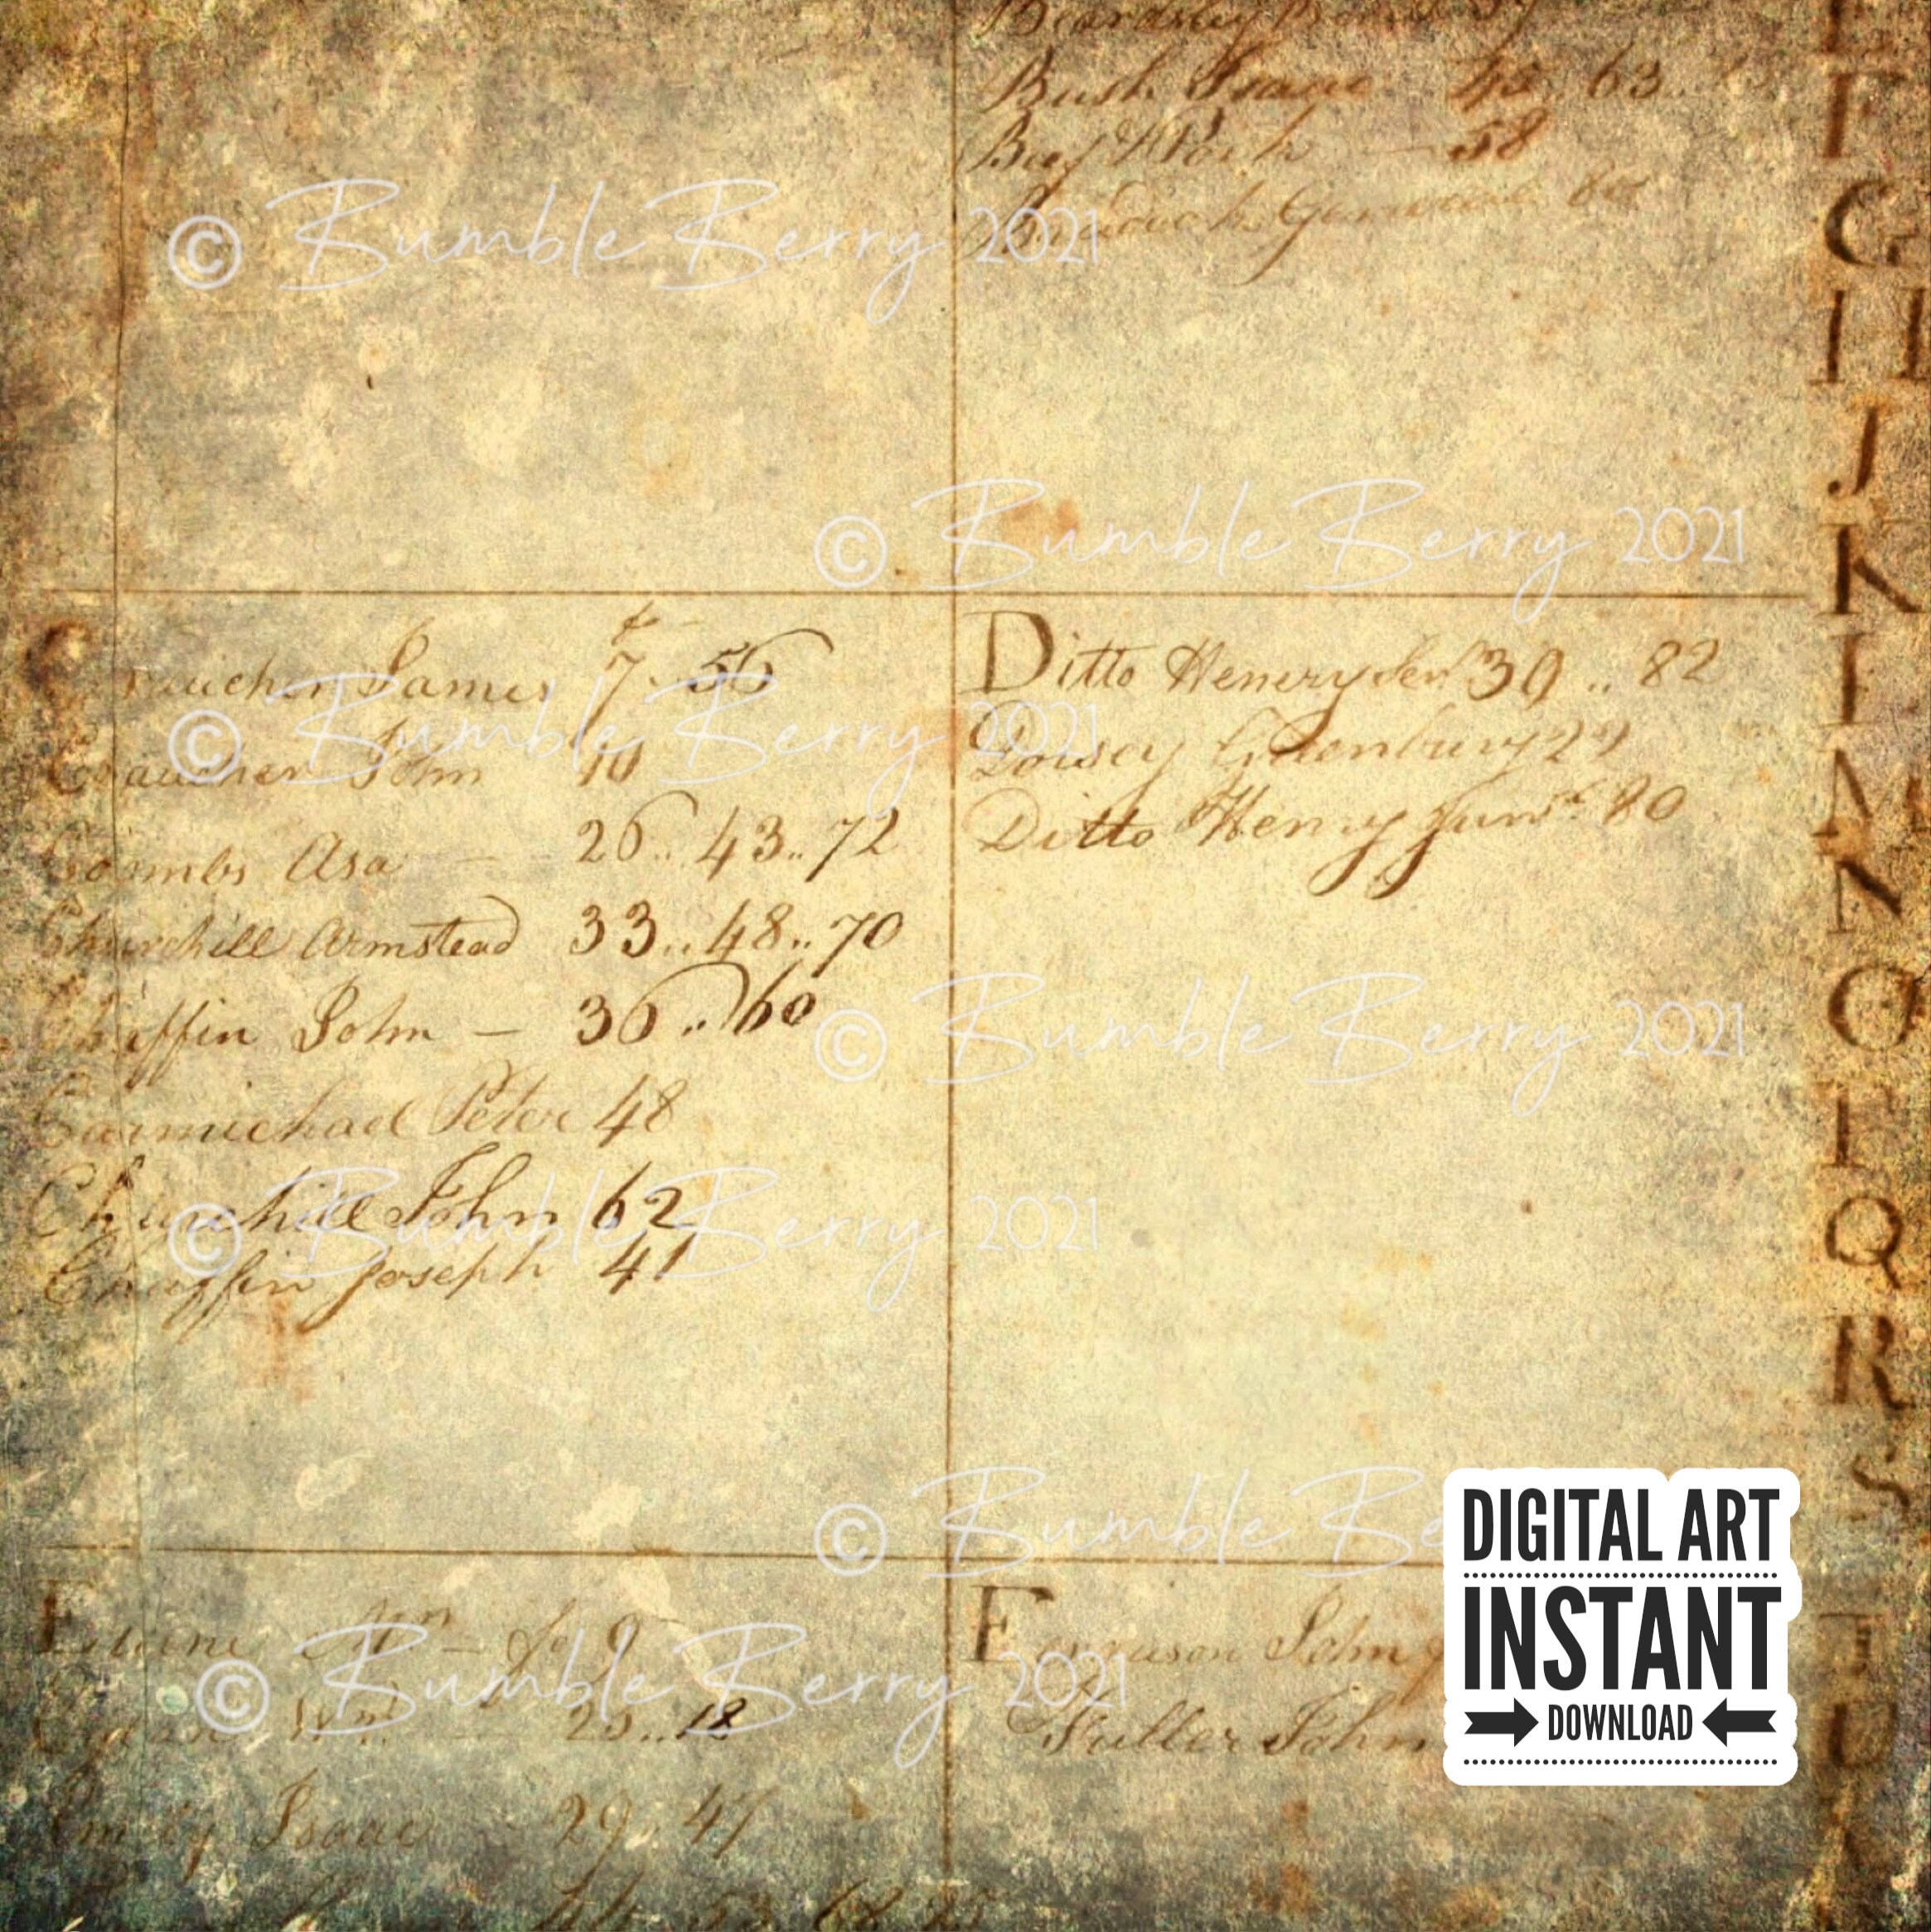 Bush Isaac 42.. 63..
Beef & Pork — 58
© Bumble Berry 2021
© Bumble Berry 2021
James 7.. 56
John 10
Coombs Asa — 26.. 43.. 72
Churchill Armstead 33.. 48.. 70
Chaffin John — 36.. 60
Carmichael Peter 48
Churchill John 62
Chaffin Joseph 41
Ditto Henery Senr 30 .. 82
Dorsey Greenbury 29
Ditto Henry Junr. 80
© Bumble Berry 2021
© Bumble Berry 2021
© Bumble Berry 2021
© Bumble Be
Wm — fo 9
Wm — 25.. 18
Isaac 29.. 47
Ferguson John
Fuller John
© Bumble Berry 2021
G
H
I
J
K
L
M
N
O
P
Q
R
S
T
U
DIGITAL ART
INSTANT
DOWNLOAD